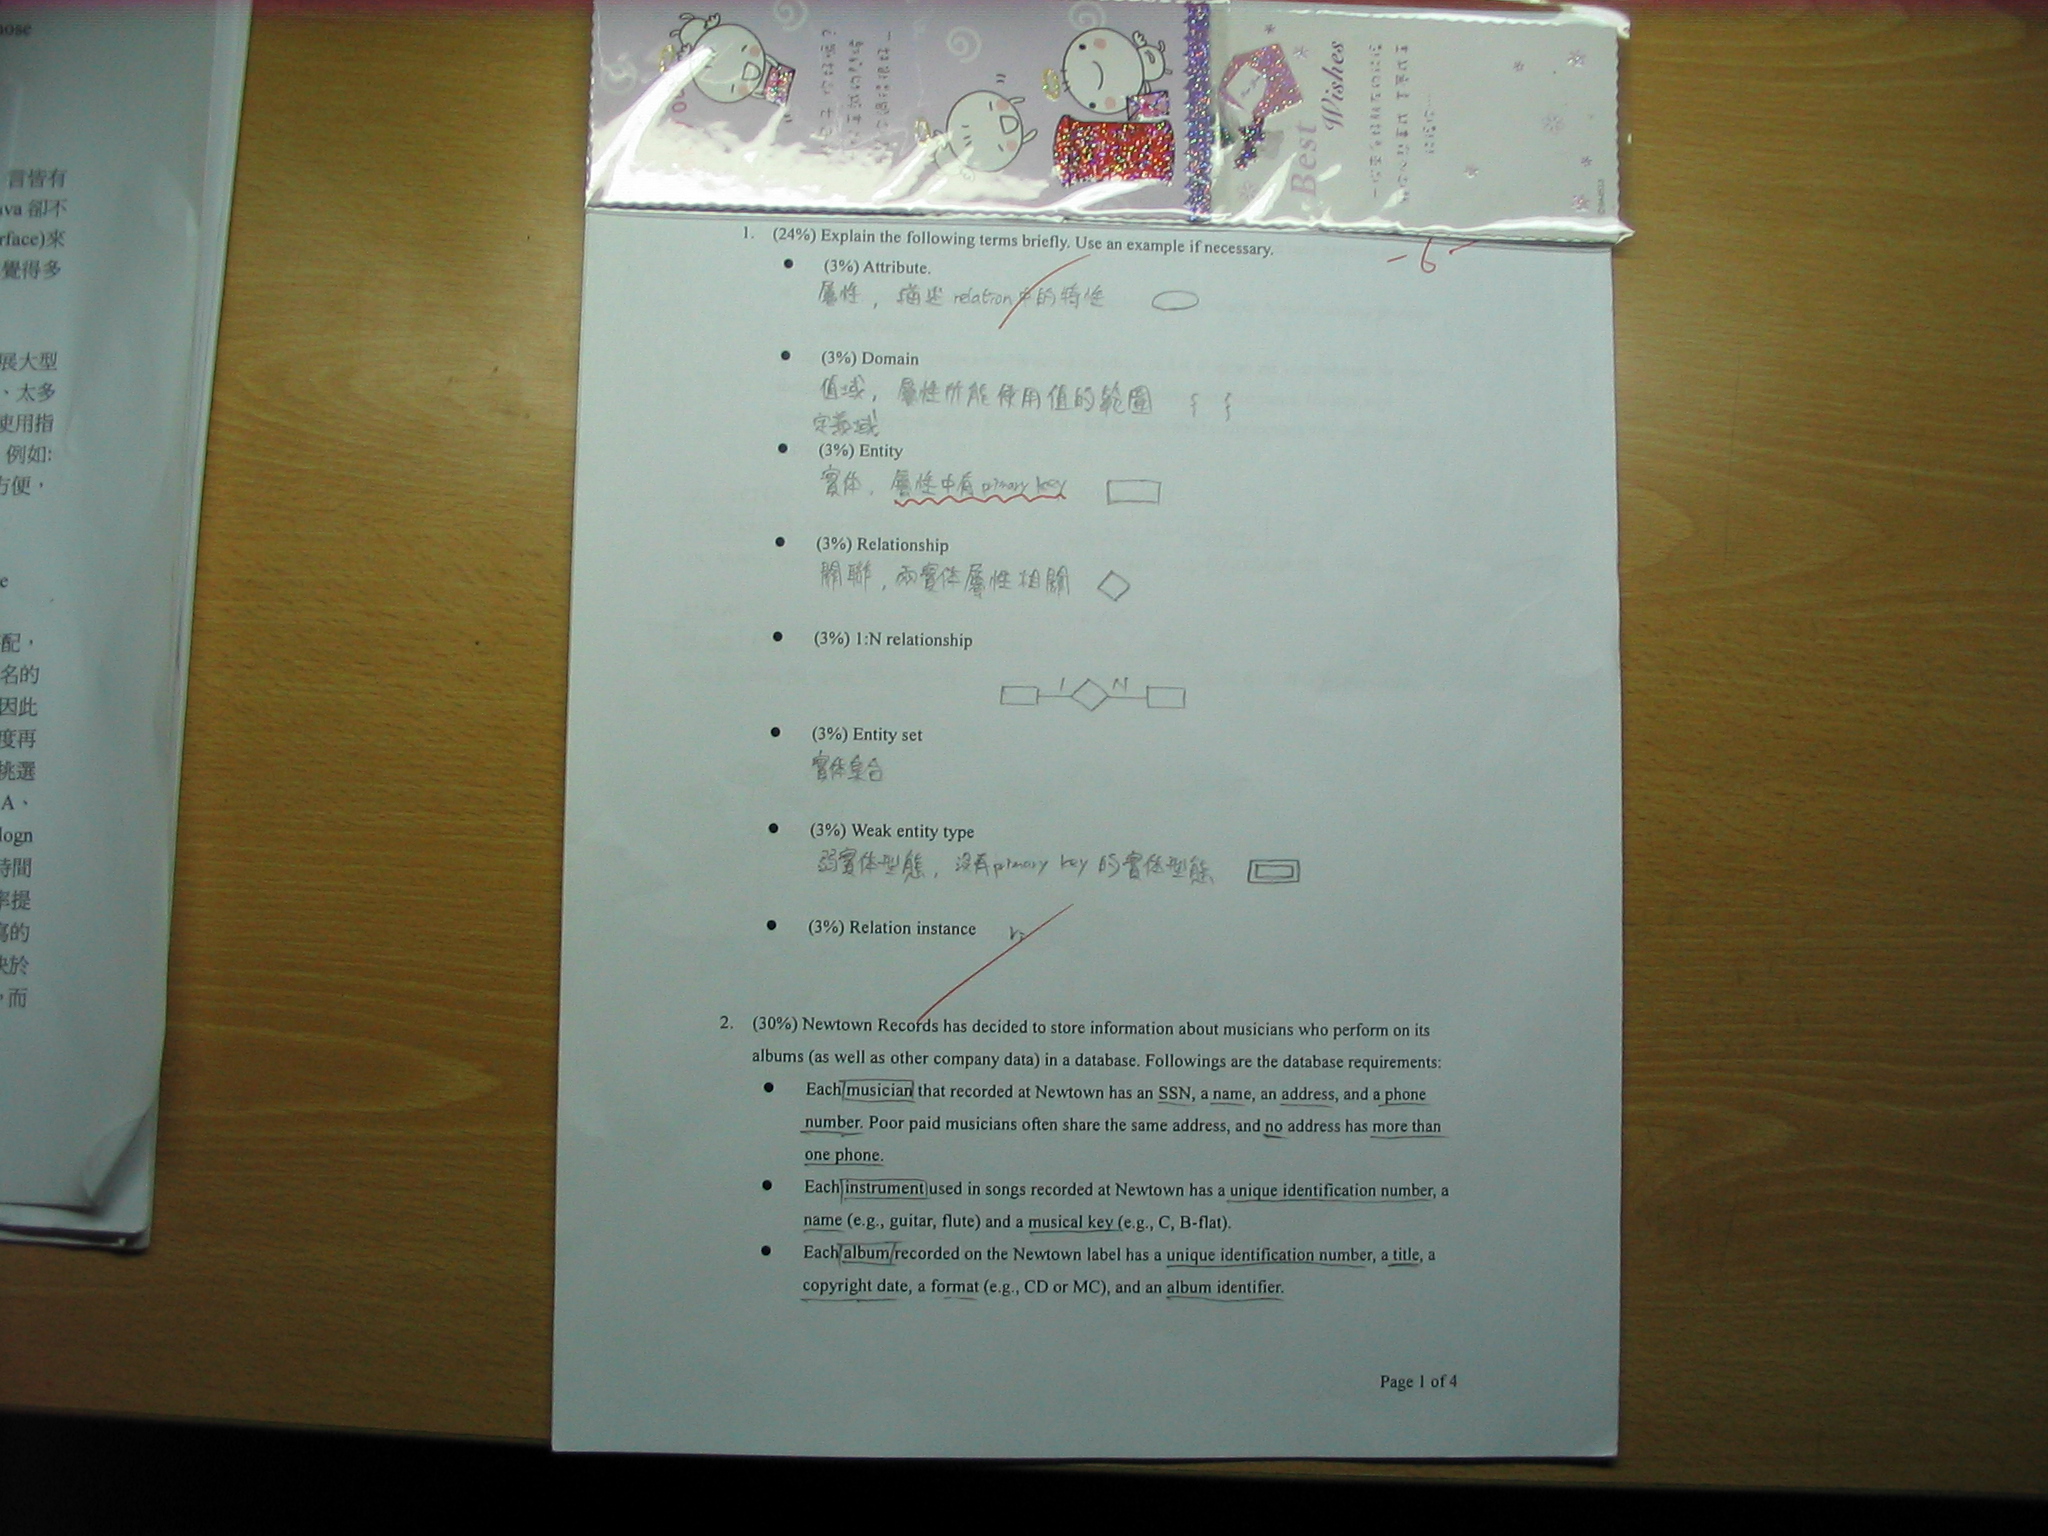 nose
言皆有
ava 卻不
rface)來
覺得多
展大型
、太多
使用指
例如:
方便，
e
配，
名的
因此
度再
挑選
A、
logn
時間
率提
寫的
決於
，而
Best
Wishes
-6
1. (24%) Explain the following terms briefly. Use an example if necessary.
● (3%) Attribute.
屬性，描述 relation 中的特性
● (3%) Domain
值域，屬性所能使用值的範圍 { }
定義域
● (3%) Entity
實体，屬性中有 primary key
● (3%) Relationship
關聯，兩實体屬性相關
● (3%) 1:N relationship
1 N
● (3%) Entity set
實体集合
● (3%) Weak entity type
弱實体型態，沒有 primary key 的實体型態
● (3%) Relation instance
2. (30%) Newtown Records has decided to store information about musicians who perform on its
albums (as well as other company data) in a database. Followings are the database requirements:
● Each musician that recorded at Newtown has an SSN, a name, an address, and a phone
number. Poor paid musicians often share the same address, and no address has more than
one phone.
● Each instrument used in songs recorded at Newtown has a unique identification number, a
name (e.g., guitar, flute) and a musical key (e.g., C, B-flat).
● Each album recorded on the Newtown label has a unique identification number, a title, a
copyright date, a format (e.g., CD or MC), and an album identifier.
Page 1 of 4